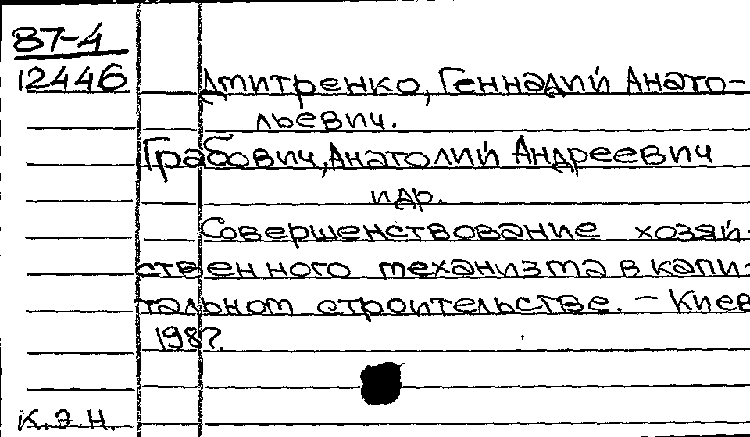 87-4
12446
Дмитренко, Геннадий Анато-
льевич.
Грабович, Анатолий Андреевич
и др.
Совершенствование хозяй-
ственного механизма в капи-
тальном строительстве. - Киев
1987.
К.Э.Н.